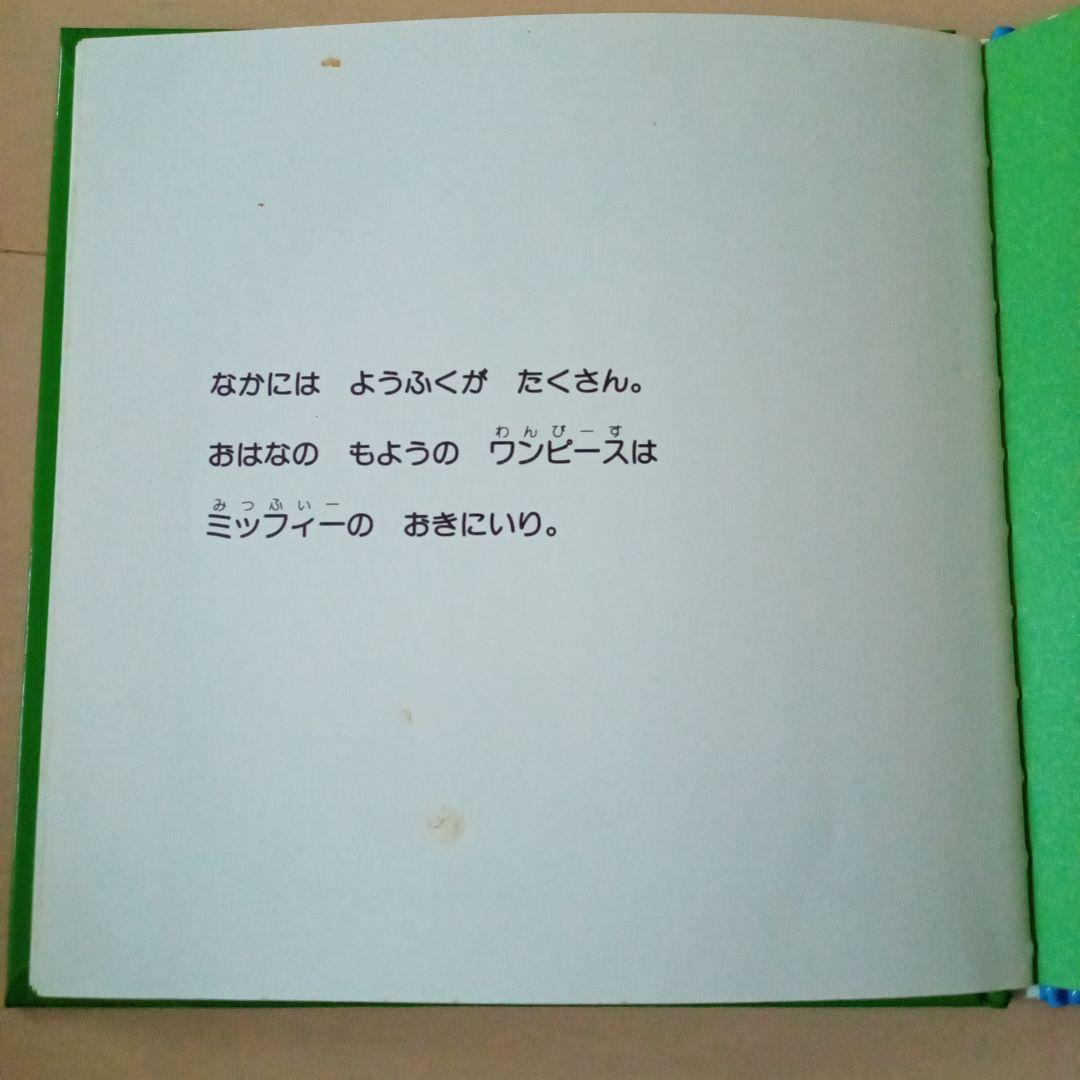 なかには　ようふくが　たくさん。
わんぴーす
おはなの　もようの　ワンピースは
みつふいー
ミッフィーの　おきにいり。